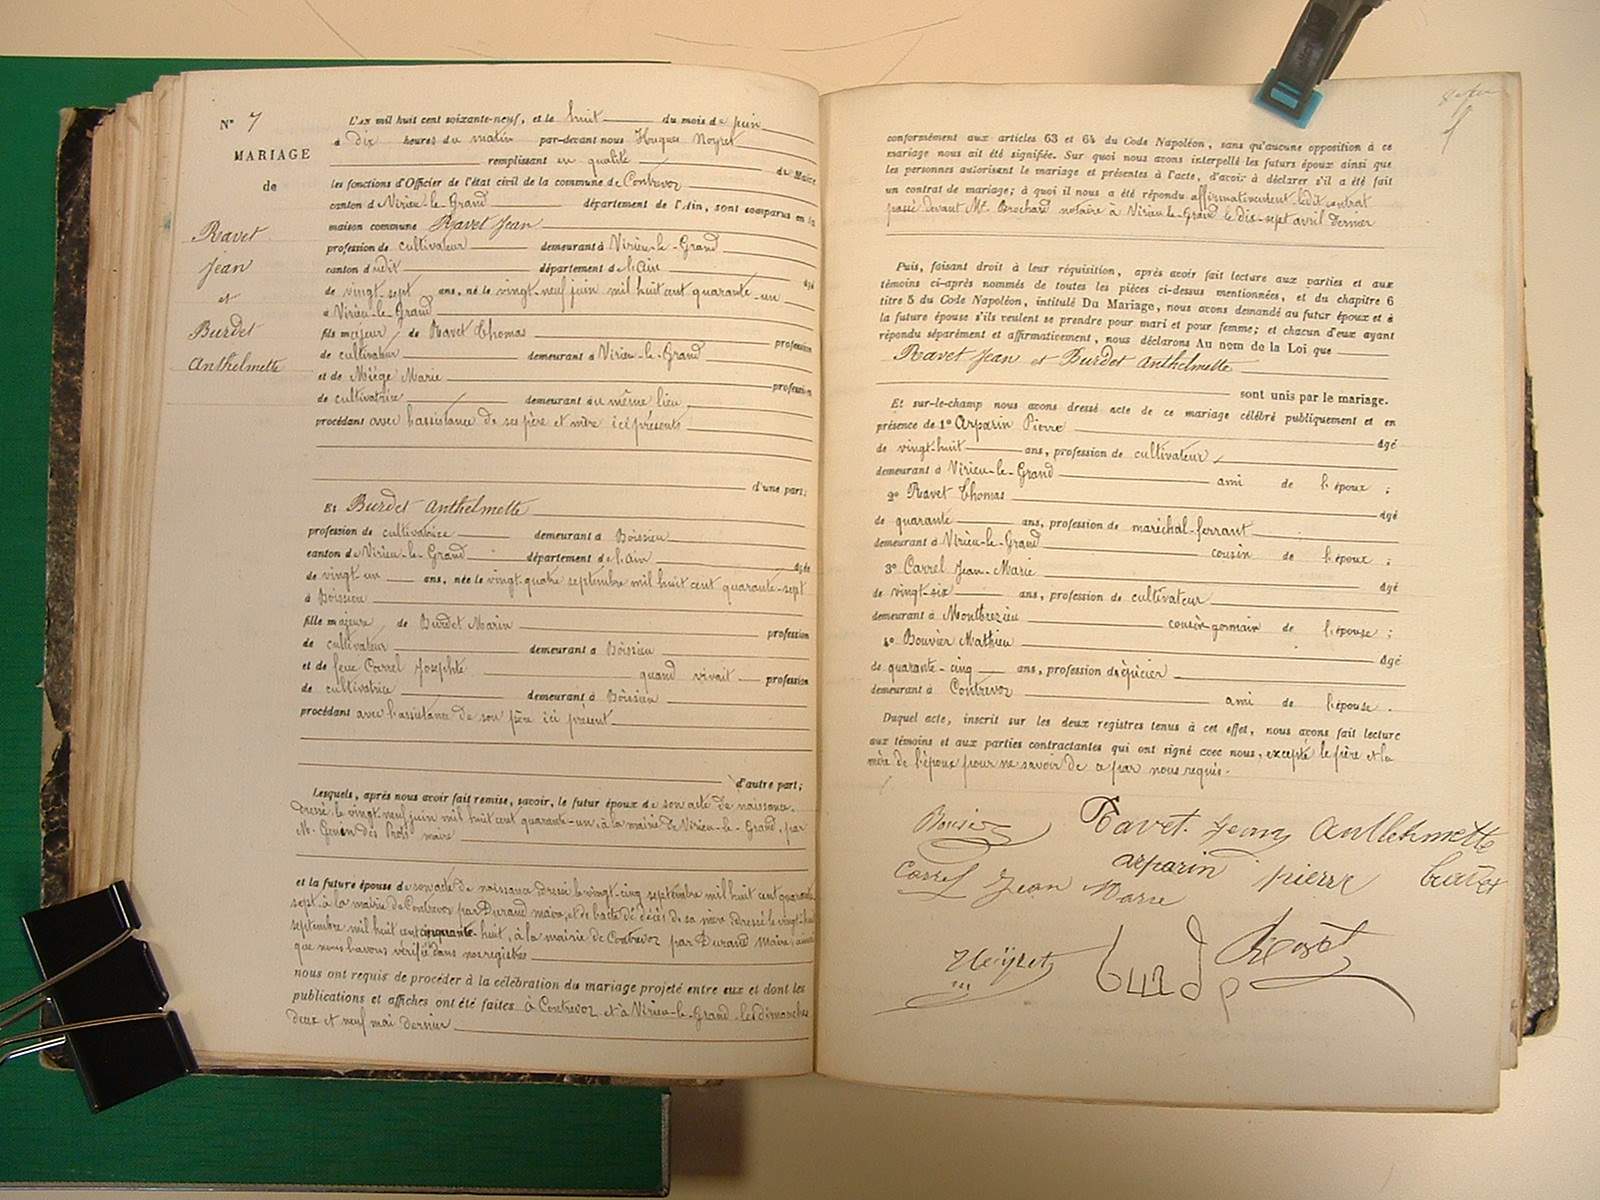 N° 7
MARIAGE
de
Ravet
Jean
et
Burdet
Anthelmette
L'AN mil huit cent soixante-neuf, et le huit du mois de juin
à dix heures du matin par-devant nous Hugues Neyret
remplissant en qualité de Maire
les fonctions d'Officier de l'état civil de la commune de Contrevoz
canton de Virieu-le-Grand département de l'Ain, sont comparus en la
maison commune Ravet Jean
profession de cultivateur demeurant à Virieu-le-Grand
canton dudit département de l'ain âgé
de vingt-sept ans, né le vingt-neuf juin mil huit cent quarante-un
à Virieu-le-Grand
fils majeur de Ravet Thomas profession
de cultivateur demeurant à Virieu-le-Grand
et de Miège Marie profession
de cultivatrice demeurant au même lieu
procédant avec l'assistance de ses père et mère ici présents
d'une part;
Et Burdet Anthelmette
profession de cultivatrice demeurant à Boissieu
canton de Virieu-le-Grand département de l'ain âgée
de vingt-un ans, née le vingt-quatre septembre mil huit cent quarante-sept
à Boissieu
fille majeure de Burdet Marin profession
de cultivateur demeurant à Boissieu
et de feue Carrel Josephte quand vivait profession
de cultivatrice demeurant à Boissieu
procédant avec l'assistance de son père ici présent
d'autre part;
Lesquels, après nous avoir fait remise, savoir, le futur époux de son acte de naissance
dressé le vingt-neuf juin mil huit cent quarante-un, à la mairie de Virieu-le-Grand, par
M. des maire
et la future épouse de son acte de naissance dressé le vingt-cinq septembre mil huit cent quarante
sept à la mairie de Contrevoz par Durand maire, et de l'acte de décès de sa mère dressé le vingt-huit
septembre mil huit cent cinquante-huit, à la mairie de Contrevoz par Durand Maire, ainsi
que nous l'avons vérifié dans nos registres
nous ont requis de procéder à la célébration du mariage projeté entre eux et dont les
publications et affiches ont été faites à Contrevoz et à Virieu-le-Grand les dimanches
deux et neuf mai dernier
conformément aux articles 63 et 64 du Code Napoléon, sans qu'aucune opposition à ce
mariage nous ait été signifiée. Sur quoi nous avons interpellé les futurs époux ainsi que
les personnes autorisant le mariage et présentes à l'acte, d'avoir à déclarer s'il a été fait
un contrat de mariage; à quoi il nous a été répondu affirmativement ledit contrat
passé devant Me. Brochard notaire à Virieu-le-Grand le dix-sept avril dernier
Puis, faisant droit à leur réquisition, après avoir fait lecture aux parties et aux
témoins ci-après nommés de toutes les pièces ci-dessus mentionnées, et du chapitre 6
titre 5 du Code Napoléon, intitulé Du Mariage, nous avons demandé au futur époux et à
la future épouse s'ils veulent se prendre pour mari et pour femme; et chacun d'eux ayant
répondu séparément et affirmativement, nous déclarons Au nom de la Loi que
Ravet Jean et Burdet Anthelmette
sont unis par le mariage.
Et sur-le-champ nous avons dressé acte de ce mariage célébré publiquement et en
présence de 1° Arparin Pierre âgé
de vingt-huit ans, profession de cultivateur
demeurant à Virieu-le-Grand ami de l'époux ;
2° Ravet Thomas âgé
de quarante ans, profession de maréchal-ferrant
demeurant à Virieu-le-Grand cousin de l'époux ;
3° Carrel Jean-Marie âgé
de vingt-six ans, profession de cultivateur
demeurant à Montbrezieu cousin germain de l'épouse ;
4° Bouvier Mathieu âgé
de quarante-cinq ans, profession d'épicier
demeurant à Contrevoz ami de l'épouse.
Duquel acte, inscrit sur les deux registres tenus à cet effet, nous avons fait lecture
aux témoins et aux parties contractantes qui ont signé avec nous, excepté le père et la
mère de l'époux pour ne savoir de ce par nous requis.
Bouvier Ravet Jean Anthelmette
arparin pierre burdet
Carrel Jean Marie
Neÿret burde Ravet